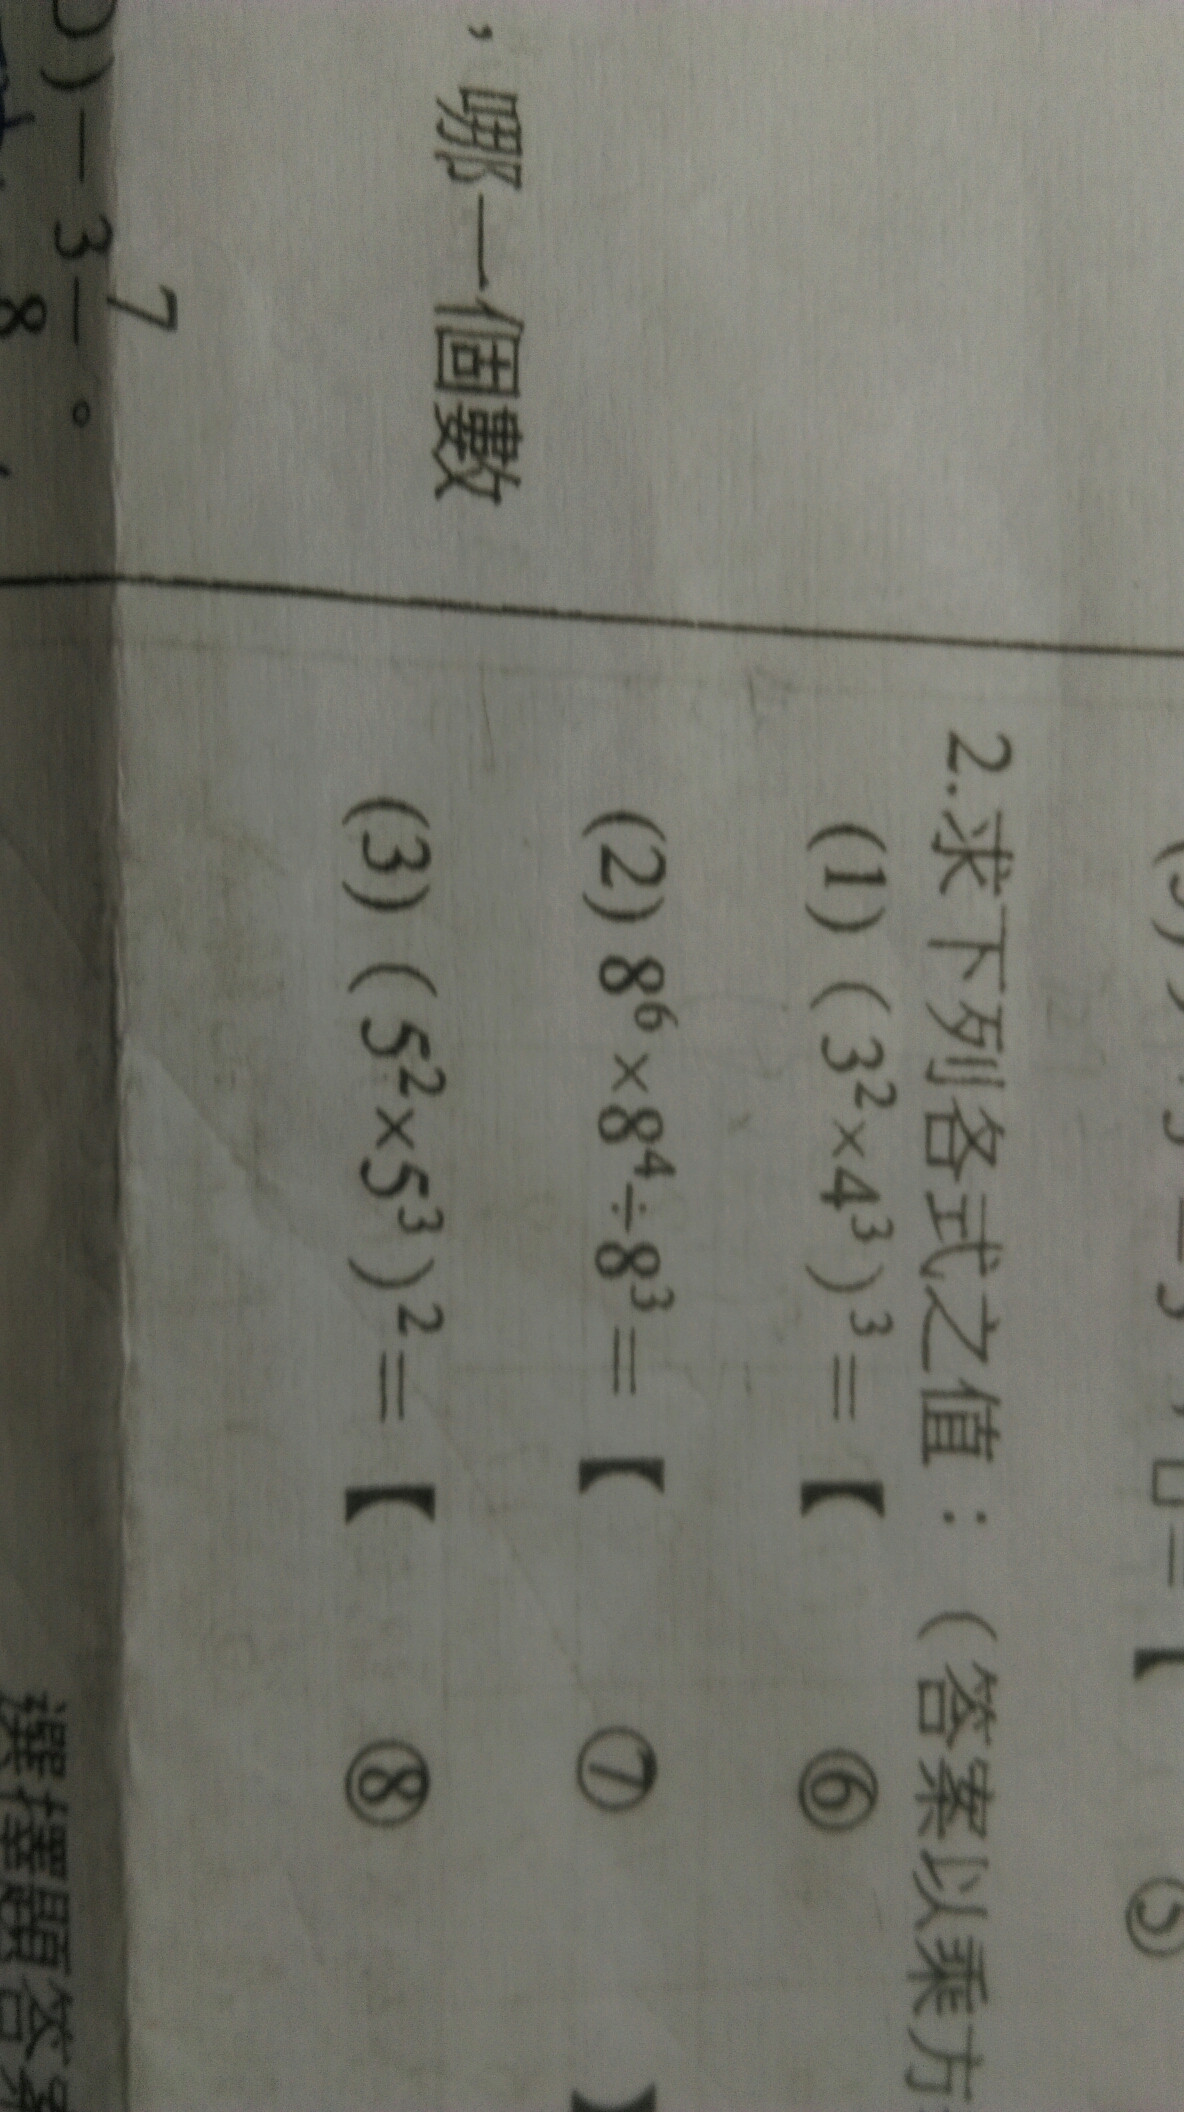 ，哪一個數
) − 3 7/8 。
2.求下列各式之值：（答案以乘方
(1)（3²×4³）³＝【 ⑥
(2) 8⁶×8⁴÷8³＝【 ⑦ 】
(3)（5²×5³）²＝【 ⑧
選擇題答案